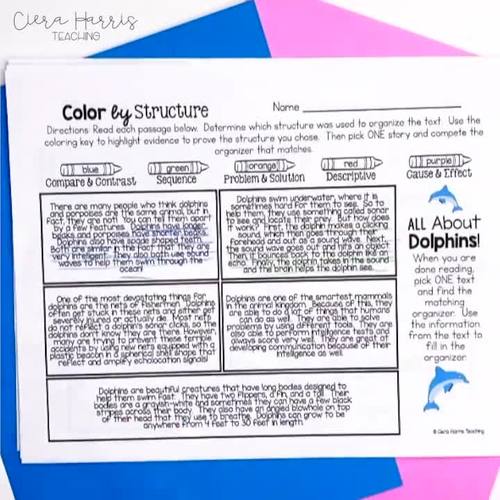 Ciera Harris
TEACHING
Color by Structure
Name
Directions: Read each passage below. Determine which structure was used to organize the text. Use the
coloring key to highlight evidence to prove the structure you chose. Then pick ONE story and compete the
organizer that matches.
blue
green
orange
red
purple
Compare & Contrast
Sequence
Problem & Solution
Descriptive
Cause & Effect
There are many people who think dolphins
and porpoises are the same animal, but in
fact, they are not! You can tell them apart
by a few features. Dolphins have longer
beaks and porpoises have shorter beaks.
Dolphins also have spade shaped teeth.
Both are similar in the fact that they are
very intelligent. They also both use sound
waves to help them swim through the
ocean!
Dolphins swim underwater, where it is
sometimes hard for them to see. So to
help them, they use something called sonar
to see and locate their prey. But how does
it work? First, the dolphin makes a clicking
sound, which then goes through their
forehead and out as a sound wave. Next,
the sound wave goes out and hits an object.
Then, it bounces back to the dolphin like an
echo. Finally, the dolphin takes in the sound
and the brain helps the dolphin see.
One of the most devastating things for
dolphins are the nets of fishermen. Dolphins
often get stuck in these nets and either get
severely injured or actually die. Most nets
do not reflect a dolphin's sonar clicks, so the
dolphins don't know they are there. However,
many are trying to prevent these terrible
accidents by using new nets equipped with a
plastic beacon in a spherical shell shape that
reflect and amplify echolocation signals!
Dolphins are one of the smartest mammals
in the animal kingdom. Because of this, they
are able to do a lot of things that humans
can do as well. They are able to solve
problems by using different tools. They are
also able to perform intelligence tests and
always score very well. They are great at
developing communication because of their
intelligence as well.
Dolphins are beautiful creatures that have long bodies designed to
help them swim fast. They have two flippers, a fin, and a tail. Their
bodies are a grayish-white and sometimes they can have a few black
stripes across their body. They also have an angled blowhole on top
of their head that they use to breathe. Dolphins can grow to be
anywhere from 4 feet to 30 feet in length.
ALL About
Dolphins!
When you are
done reading,
pick ONE text
and find the
matching
organizer. Use
the information
from the text to
fill in the
organizer.
© Ciera Harris Teaching